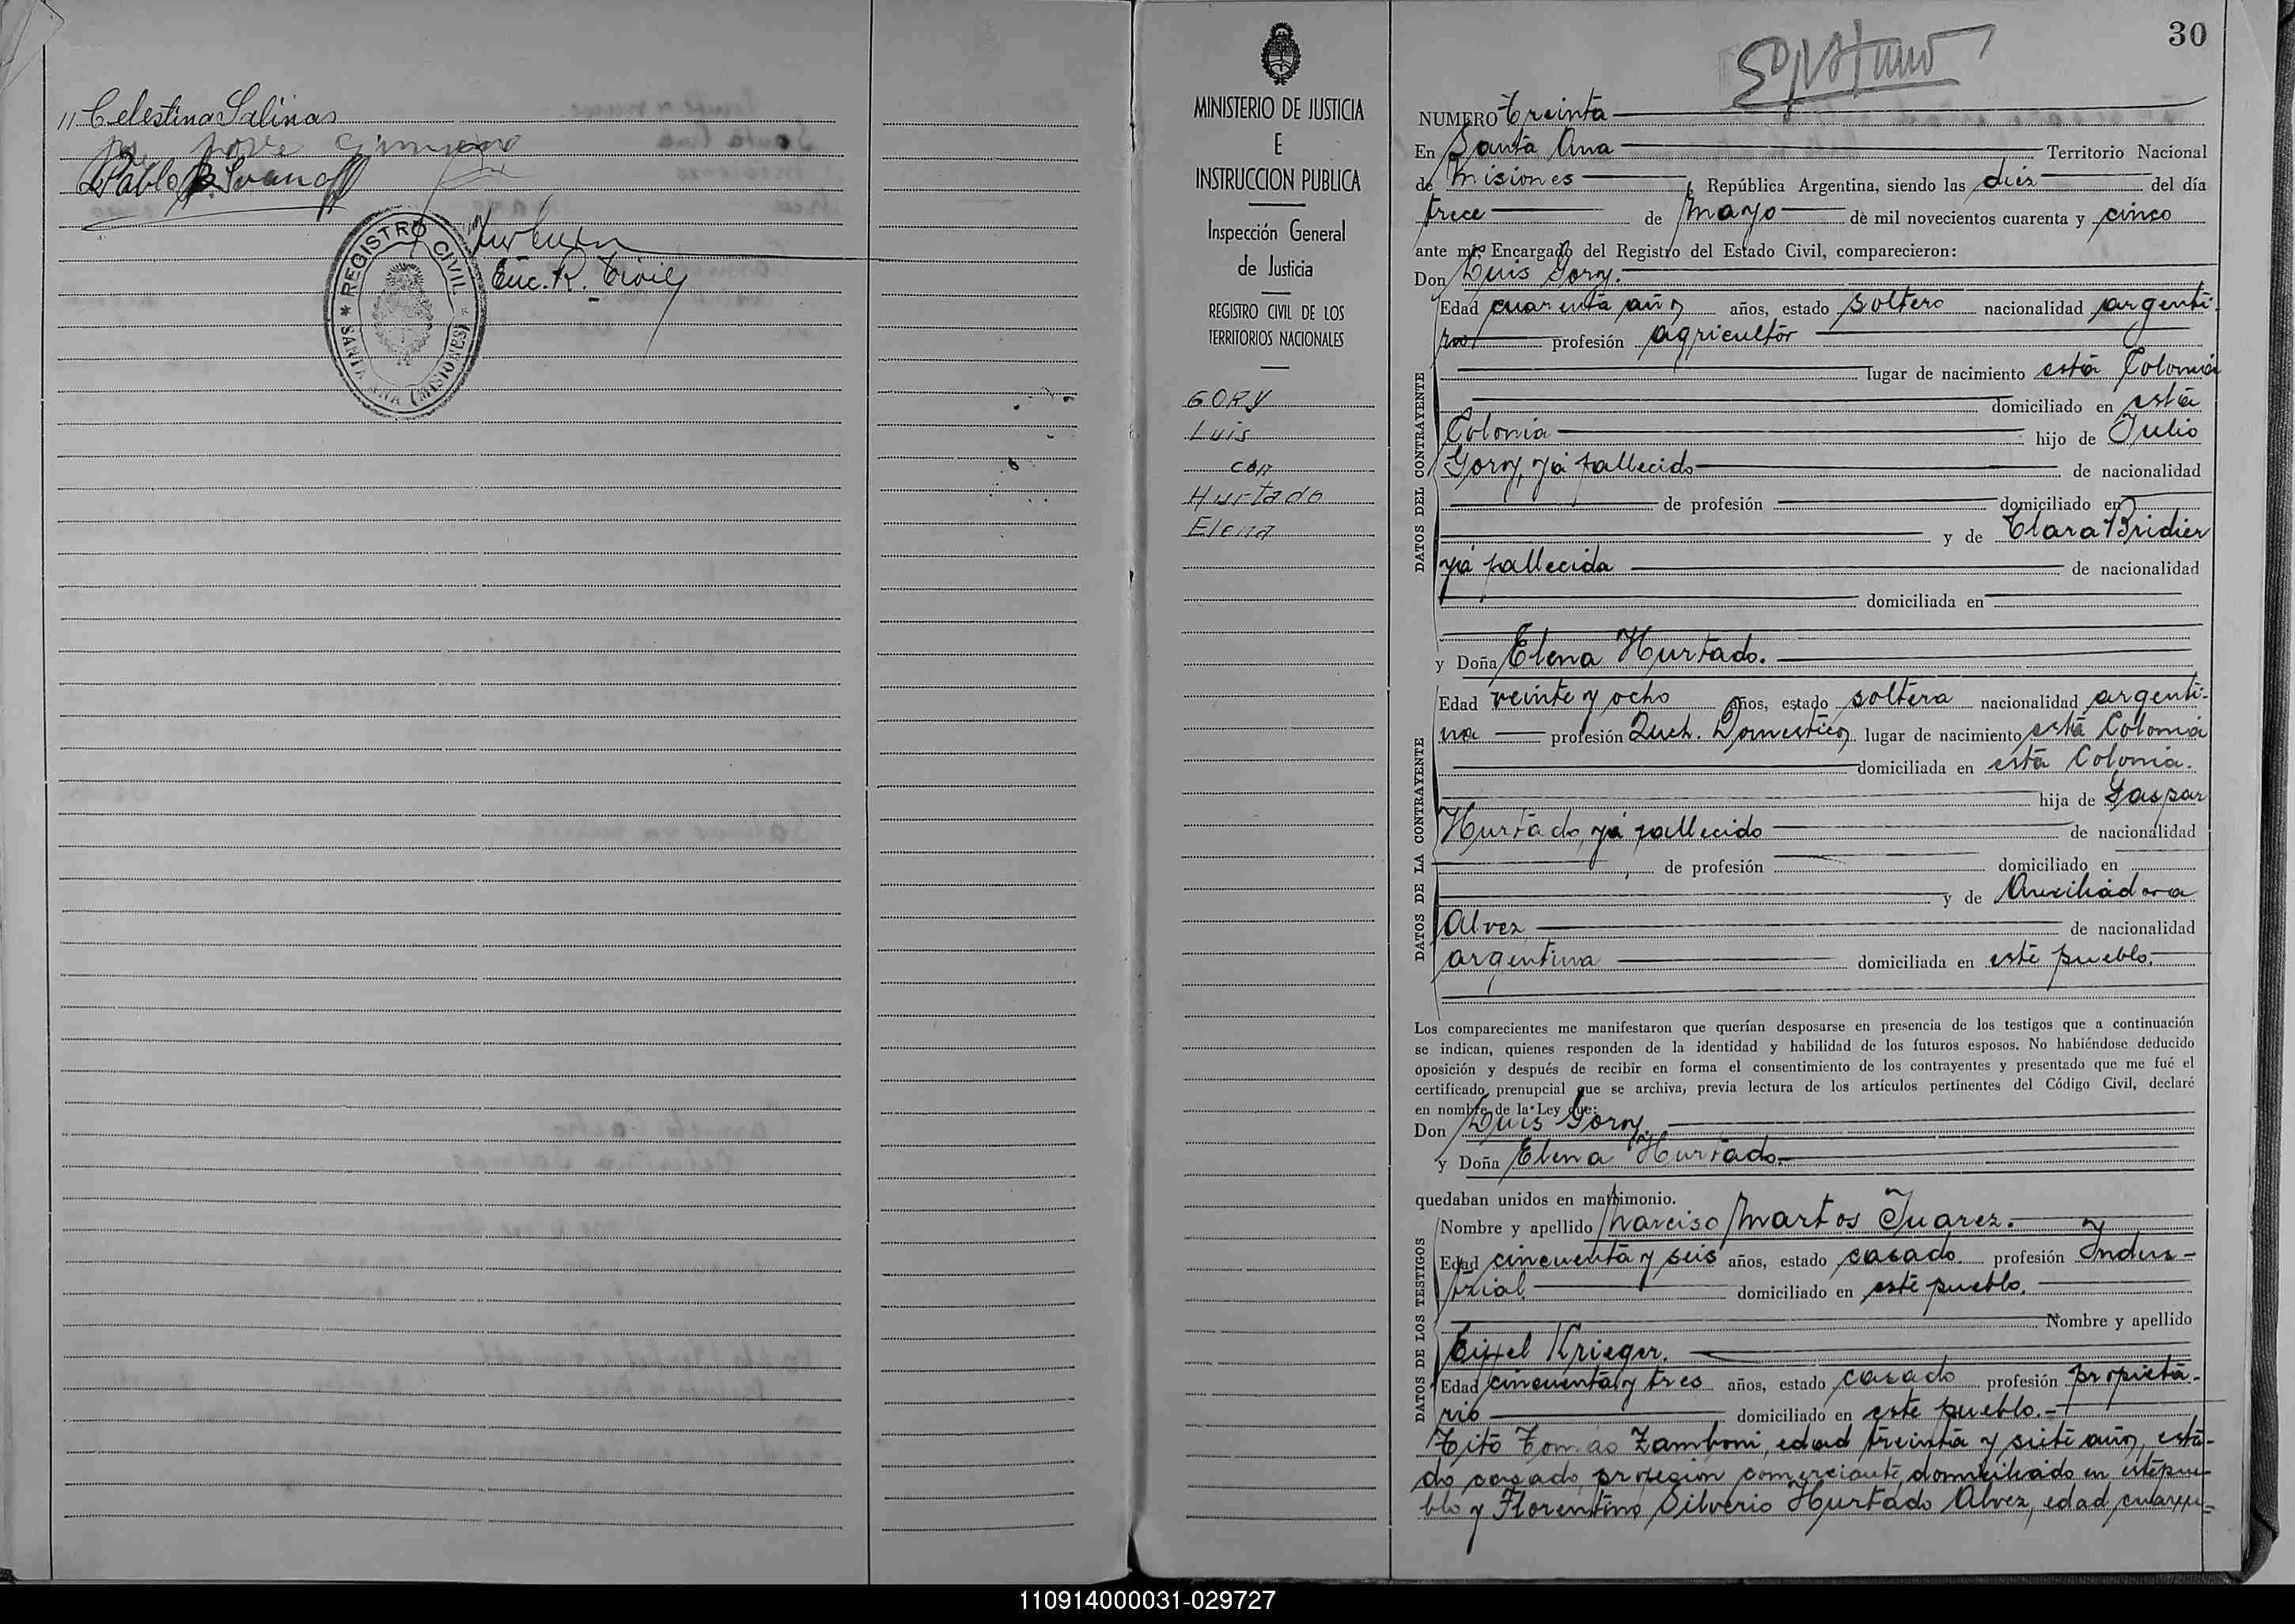 " Celestina Salinas
Pablo P. Ivanoff
Enc. R. Civil
* REGISTRO CIVIL *
SANTA ANA (MISIONES)
MINISTERIO DE JUSTICIA
E
INSTRUCCION PUBLICA
Inspección General
de Justicia
REGISTRO CIVIL DE LOS
TERRITORIOS NACIONALES
GORY
Luis
con
Hurtado
Elena
30
NUMERO Treinta
En Santa Ana Territorio Nacional
de Misiones, República Argentina, siendo las diez del día
trece de Mayo de mil novecientos cuarenta y cinco
ante mí, Encargado del Registro del Estado Civil, comparecieron:
Don Luis Gory.
DATOS DEL CONTRAYENTE
Edad cuarenta años años, estado soltero nacionalidad argenti-
no profesión agricultor
lugar de nacimiento esta Colonia
domiciliado en esta
Colonia hijo de Julio
Gory, ya fallecido de nacionalidad
de profesión domiciliado en
y de Clara Bridier
ya fallecida de nacionalidad
domiciliada en
y Doña Elena Hurtado.
DATOS DE LA CONTRAYENTE
Edad veinte y ocho años, estado soltera nacionalidad argenti-
na profesión Queh. Domesticos lugar de nacimiento esta Colonia
domiciliada en esta Colonia.
hija de Gaspar
Hurtado, ya fallecido de nacionalidad
de profesión domiciliado en
y de Auxiliadora
Alvez de nacionalidad
argentina domiciliada en este pueblo.
Los comparecientes me manifestaron que querían desposarse en presencia de los testigos que a continuación
se indican, quienes responden de la identidad y habilidad de los futuros esposos. No habiéndose deducido
oposición y después de recibir en forma el consentimiento de los contrayentes y presentado que me fué el
certificado prenupcial que se archiva, previa lectura de los artículos pertinentes del Código Civil, declaré
en nombre de la Ley que:
Don Luis Gory.
y Doña Elena Hurtado.
quedaban unidos en matrimonio.
DATOS DE LOS TESTIGOS
Nombre y apellido Narciso Martos Juarez.
Edad cincuenta y seis años, estado casado. profesión Indus-
trial domiciliado en este pueblo.
Nombre y apellido
Eiffel Krieger.
Edad cincuenta y tres años, estado casado profesión propieta-
rio domiciliado en este pueblo.
Tito Tomas Zamboni, edad treinta y siete años, esta-
do casado, profesion comerciante, domiciliado en este pue-
blo y Florentino Silverio Hurtado Alvez, edad cuaren-
110914000031-029727